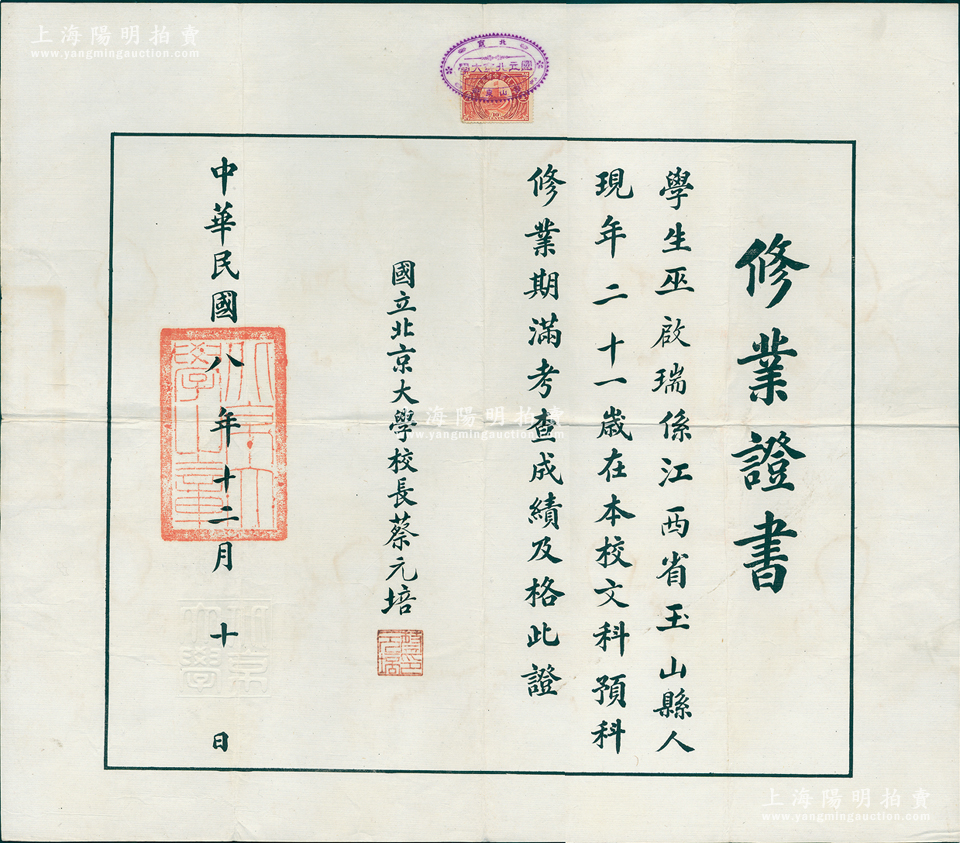 上海陽明拍賣
www.yangmingauction.com
國立北京大學
修業證書
學生巫啟瑞係江西省玉山縣人
現年二十一歲在本校文科預科
修業期滿考查成績及格此證
國立北京大學校長蔡元培
中華民國八年十二月十日
北京大學之章
上海陽明拍賣
www.yangmingauction.com
上海陽明拍賣
www.yangmingauction.com